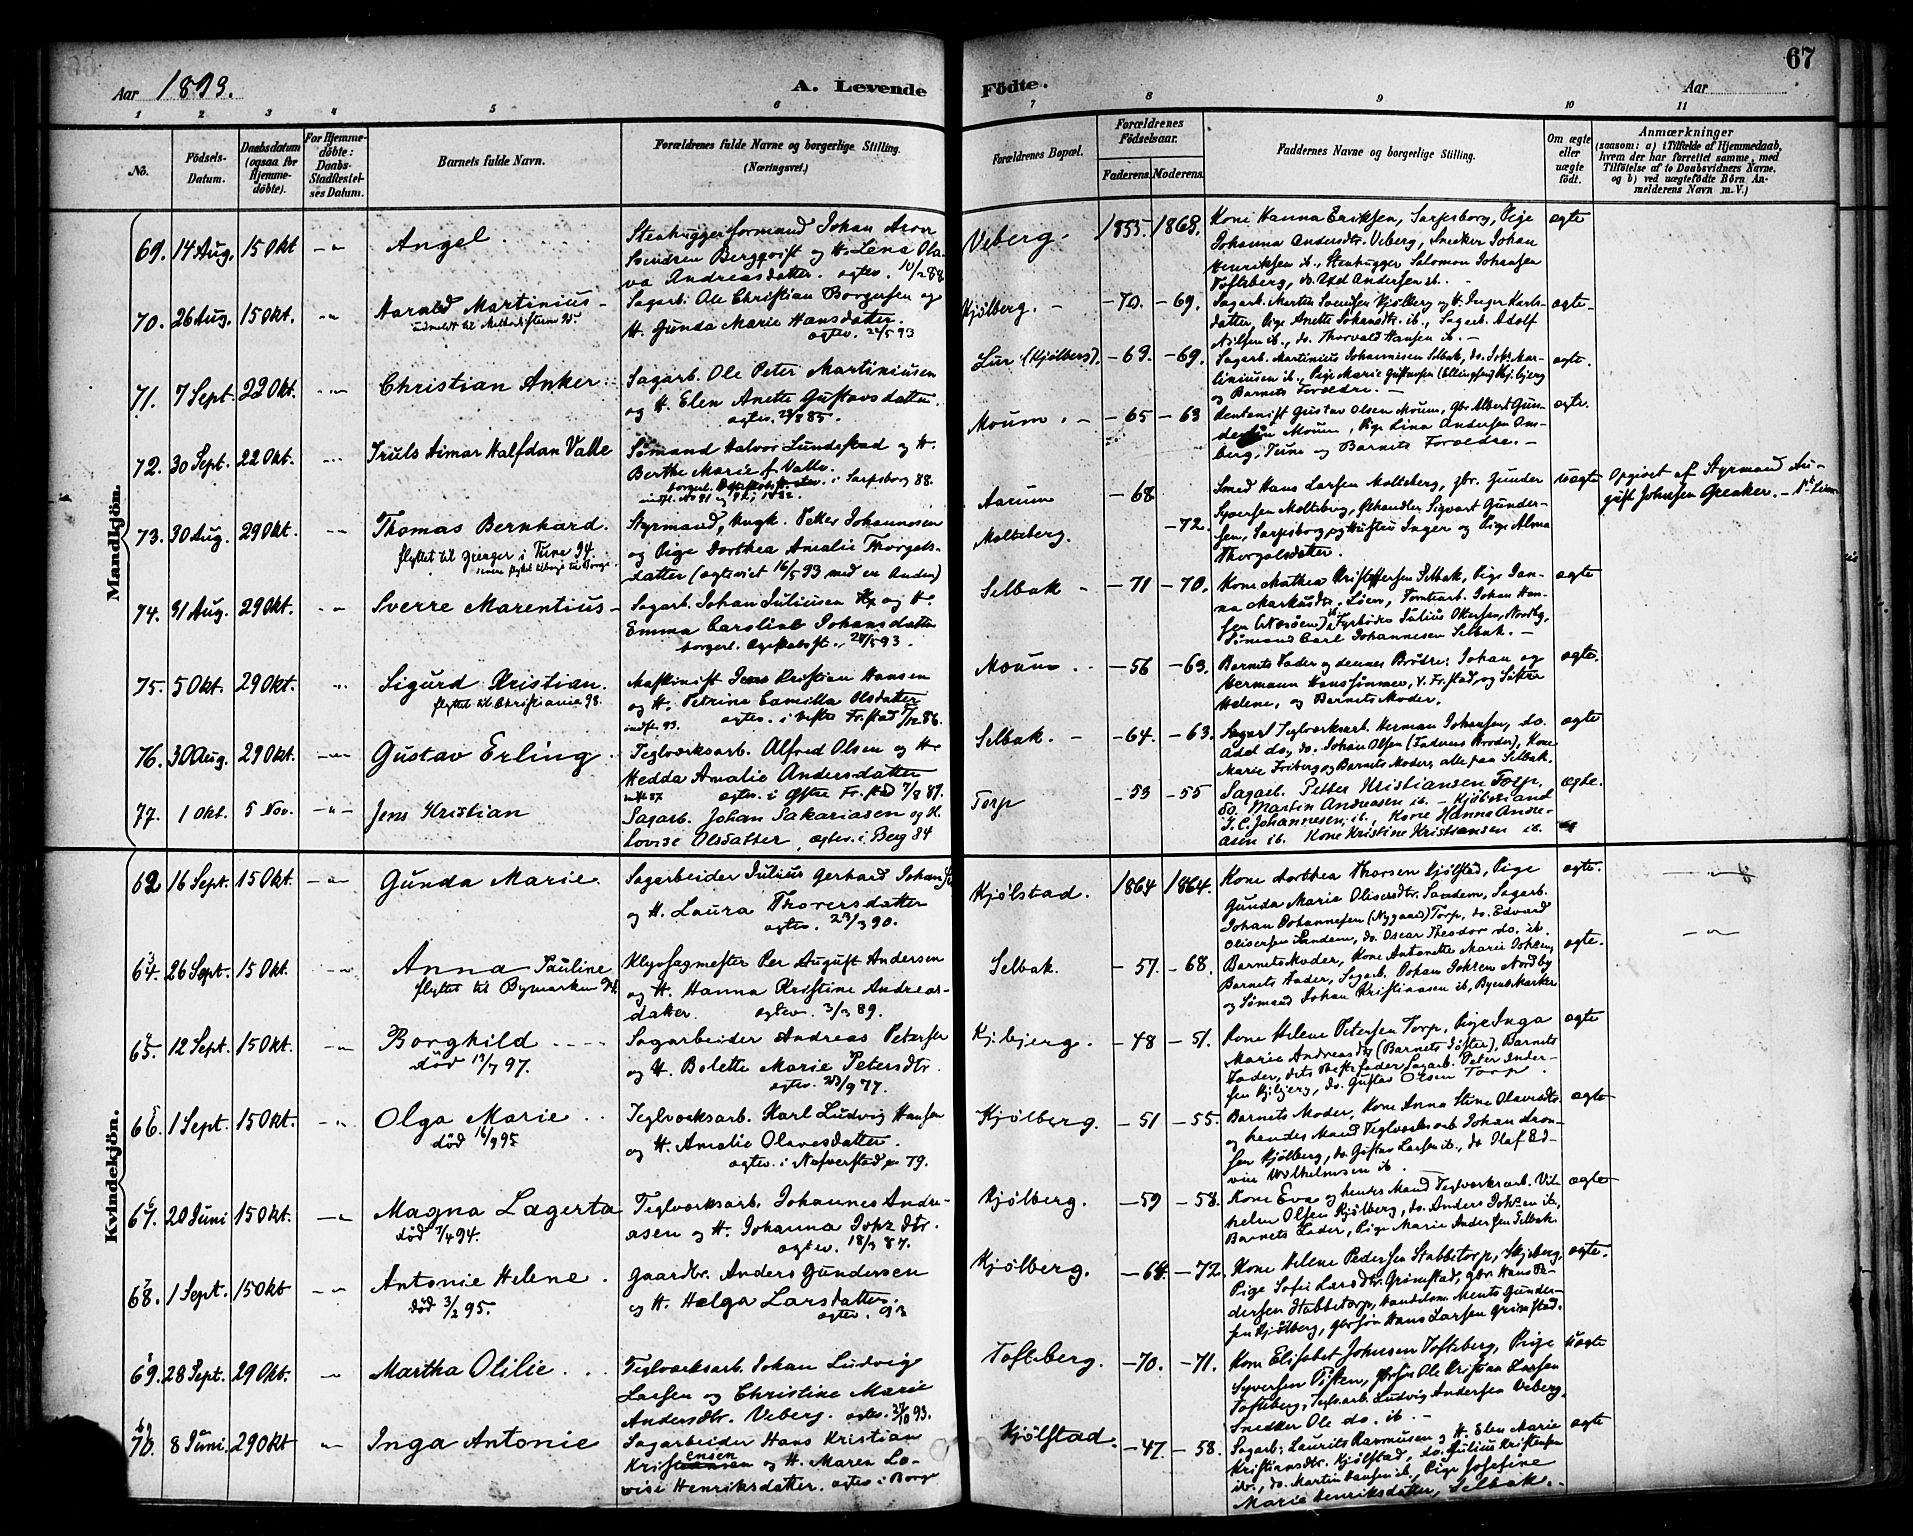 67
Aar 1893.
A. Levende
Födte.
Aar
1 2 3 4 5 6 7 8 9 10 11
No.
Födsels-Datum.
Daabsdatum (ogsaa for Hjemme-döbte).
For Hjemme-döbte: Daabs-Stadfæstel-ses Datum.
Barnets fulde Navn.
Forældrenes fulde Navne og borgerlige Stilling.
(Næringsvei.)
Forældrenes Bopæl.
Forældrenes Födselsaar.
Faderens. Moderens.
Faddernes Navne og borgerlige Stilling.
Om ægte eller uægte født.
Anmærkninger
(saasom: a) i Tilfælde af Hjemmedaab,
hvem der har forrettet samme, med
Tilföielse af to Daabsvidners Navne.
og b) ved uægtefödte Börn An-
melderens Navn m. V.)
Mandkjön.
69. 14 Aug. 15 Okt Angel
Stenhuggerformand Johan Aron
Svendsen Bergqvist og H. Lena Ola-
va Andreasdatter. egtev. 10/2 88
Veberg. 1855 - 1868.
Kone Hanna Eriksen, Sarpsborg, Pige
Johanna Andersdtr. Veberg, Snedker Johan
Henriksen ib., Stenhugger Salomon Johansen
Tofteberg, do. Andersen ib.
ægte
70. 26 Aug. 15 Okt. Harald Martinius
Sagarb. Ole Christian Borgersen og
H. Gunda Marie Hansdatter.
egtev. 24/5 93
Kjølberg. - 70. - 69.
Sagarb. Martin Svendsen Kjølberg og H. Inger Karls-
datter, Pige Anette Johansdtr. ib., Sagarb. Adolf
Nilsen ib., do. Thorvald Hansen ib. -
ægte.
71. 7 Sept. 22 Okt. Christian Anker
Sagarb. Ole Peter Martiniusen
og H. Elen Anette Gustavsdatter.
Lur (Kjølberg). - 69. - 69.
Sagarb. Martinius Johannisen Selbak, do. Joh. Mar-
tiniusen ib., Pige Marie Gustavsen (Ellingsen) Kjölbjerg
og Barnets Forældre. -
ægte.
72. 30 Sept. 22 Okt. Truls Aimar Halfdan Valle
Sømand Halvor Lundestad og H.
Berthe Marie f. Valle.
i Sarpsborg 88.
Moum. - 65 - 63
Gustav Olsen Moum, gbr. Albert Gun-
dersen Moum, Pige Lina Andersen Om-
berg, Tune og Barnets Forældre. -
ægte.
73. 30 Aug. 29 Okt. Thomas Bernhard.
flyttet til Greager i Tune 94.
Styrmand, Ungk. Petter Johannesen
og Pige Dorthea Amalie Thorgels-
datter (egteviet 16/5 93 med en Anden)
Aarum - 68
Molteberg. - 72.
Smed Hans Larsen Molteberg, gbr. Gunder
Syversen Molteberg, Ghandler Sigvart Gunder-
sen, Sarpsborg og Hustru Inger og Pige Alma
Thorgelsdatter.
uægte
Opgivet af Styrmand Au-
gust Johnsen Greaker.
74. 31 Aug. 29 Okt. Sverre Marentius
Sagarb. Johan Juliusen og H.
Emma Caroline Johansdatter
borgerl. Egteskabsst. 24/5 93.
Selbak - 71 - 70.
Kone Mathea Kristoffersen Selbak, Pige Jan-
na Markusdtr. Löen, Tomtearb. Johan Han-
sen (Næsøen) ib., Fyrbøder Julius Ottersen, Nordby,
Sømand Carl Johannesen Selbak. -
ægte
75. 5 Okt. 29 Okt. Sigurd Kristian.
flyttet til Christiania 98.
Maskinist Jens Kristian Hansen
og H. Petrine Camilla Olsdatter
indfl. 93. egtev. i Vestre Fr.stad 5/12 86.
Moum. - 56 - 63.
Barnets Fader og dennes Brödre: Johan og
Hermann Hanssønner, V. Fr.stad, og Søster
Helene, og Barnets Moder.
ægte.
76. 30 Aug. 29 Okt. Gustav Erling
Teglværksarb. Alfred Olsen og H.
Hedda Amalie Andersdatter
indfl. 87 egtev. i Østre Fr.stad 7/8 87.
Selbak. - 64. - 63.
Teglværksarb. Herman Johansen, do.
Adel do, do. Johan Olsen (Faderens Broder), Kone
Marie Friberg og Barnets Moder, alle paa Selbak.
ægte
77. 1 Okt. 5 Nov. Jens Kristian
Sagarb. Johan Sakariasen og H.
Lovise Olsdatter, egtev. i Berg 84
Torp - 53 - 55
Sagarb. Petter Kristiansen Torp,
do. Martin Andreasen ib. - Kjøbmand
J. C. Johannesen, ib., Kone Hanna Andre-
asen ib. Kone Kristine Kristiansen ib.
ægte.
Kvindekjön.
62 16 Sept. 15 Okt. Gunda Marie.
Sagarbeider Julius Gerhard Johansen
og H. Laura Thorersdatter
egtev. 23/3 90.
Kjølstad. 1864 1864.
Kone Dorthea Thorsen Kjølstad, Pige
Gunda Marie Oliversdtr. Sandem, Sagarb.
Johan Johannesen (Nygaard) Torp, do. Edvard
Oliversen Sandem, do. Oscar Theodor do. ib.
ægte.
64. 26 Sept. 15 Okt. Anna Pauline
flyttet til Bymarken 94.
Klyvsagmester Per August Andersen
og H. Hanna Kristine Andreas-
datter. egtev. 3/3 89.
Selbak. - 57. - 68.
Barnets Moder, Kone Antonette Marie Johsen,
Barnets Fader, Sagarb. Johan Johsen Nordby
og Sømand Johan Kristiansen ib, Byens Marker
ægte.
65. 12 Sept. 15 Okt. Borghild
död 13/7 97.
Sagarbeider Andreas Petersen
og H. Bolette Marie Petersdtr.
egtev. 23/9 77.
Kjölbjerg. - 48 - 51.
Kone Helene Petersen Torp, Pige Inga
Marie Andreasdtr. (Barnets Søster), Barnets
Fader, dets Bestefader Sagarb. Peter Ander-
sen Kjölbjerg, do. Gustav Olsen Torp.
ægte
66. 1 Sept. 15 Okt. Olga Marie
död 16/9 95
Teglværksarb. Karl Ludvig Hansen
og H. Amalie Olavesdatter.
egtev. i Nafverstad 79.
Kjølberg. - 51 - 55.
Barnets Moder, Kone Anna Stine Olavesdtr.
og hendes Mand Teglværksarb Johan Aron-
sen Kjølberg, do. Gustav Larsen ib., do Olaf Ed-
vin Wilhelmsen ib.
ægte
67. 20 Juni 15 Okt. Magna Lagerta
död 7/4 94.
Teglværksarb. Johannes Andre-
asen og H. Johanna Johsdtr.
egtev. 18/3 87.
Kjølberg. - 59 - 58.
Kone Eva og hendes Mand Teglværksarb. Vil-
helm Olsen Kjølberg, do. Anders Johsen ib.,
Barnets Fader, Pige Marie Andersen Selbak.
ægte
68. 1 Sept. 15 Okt Antonie Helene.
död 3/2 95.
Gaardbr. Anders Gundersen
og H. Helga Larsdatter.
egtev. 93
Kjølberg. - 64. - 72.
Kone Helene Pedersen Stabbetorp, Skjeberg,
Pige Sofie Larsdtr. Grimstad, gbr. Hans Pe-
dersen Stabbetorp, Handelsm. Ments Gunder-
sen Kjølberg, gbrsøn Hans Larsen Grimstad.
ægte.
69. 28 Sept. 29 Okt. Martha Otilie
Teglværksarb. Johan Ludvig
Larsen og Christine Marie
Andersdtr. Veberg. egtev. 27/10 93.
Tofteberg. - 70. - 71.
Kone Elisabet Johnsen Tofteberg, Pige
Syversen Pisten, gbrsøn Ole Kristian Larsen
Tofteberg, Teglv.arb Ludvig Andersen Veberg,
Snedker Ole do. ib. -
uægte
70. 8 Juni. 29 Okt Inga Antonie
Sagarbeider Hans Kristian
Kristensen og H. Maren Lo-
vise Henriksdatter. egtev. i Borge
Kjølstad. - 47. - 58.
Sagarb: Laurits Rasmussen og H. Elen Marie
Kristiansdtr. Kjølstad, do. Julius Kristensen
ib., do. Martin Hansen ib., Pige Josefine
Marie Henriksdatter, Selbak. -
ægte